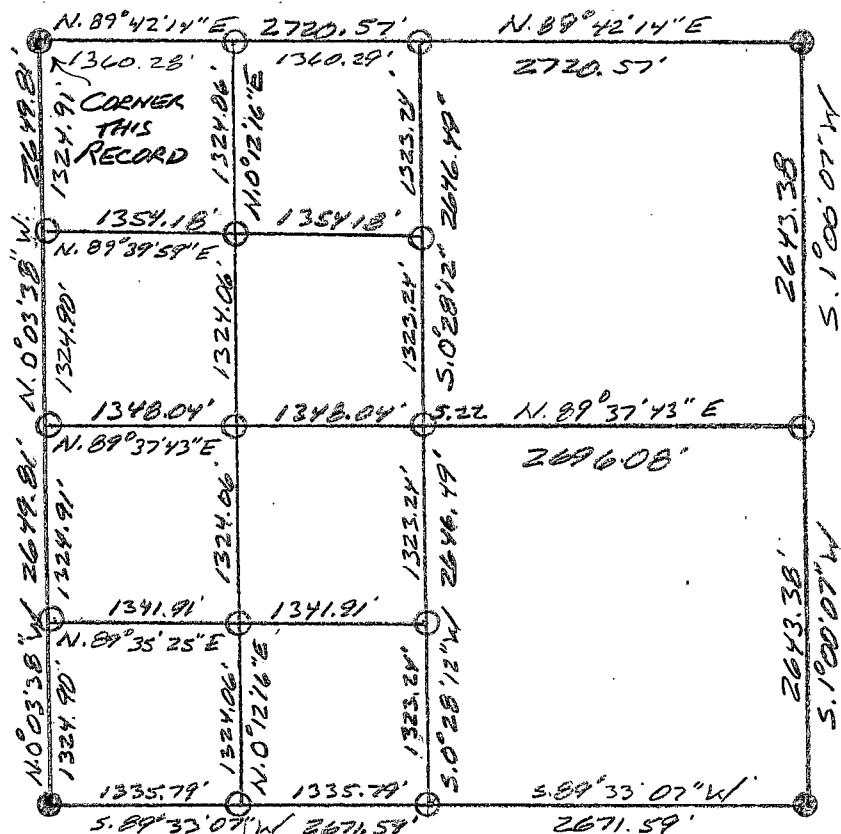 N. 89°42'14" E 2720.57' N. 89°42'14" E
1360.28' 1360.29' 2720.57'
CORNER
THIS
RECORD
N. 0°03'38" W. 2649.81'
1324.91'
1324.06'
N. 0°12'16" E
1323.24'
2646.49'
2643.38
S. 1°00'07" W
1354.18' 1354.18'
N. 89°39'59" E
1324.90'
1324.06'
1323.24'
S. 0°28'12"
1348.04' 1348.04' S.22 N. 89°37'43" E
N. 89°37'43" E 2696.08'
N. 0°03'38" W 2649.81'
1324.91'
1324.06'
1323.24'
2646.49'
2643.38'
S. 1°00'07" W
1341.91' 1341.91'
N. 89°35'25" E
1324.90'
1324.06'
N. 0°12'16" E
1323.24'
S. 0°28'12" W
1335.79' 1335.79' S. 89°33'07" W
S. 89°33'07" W 2671.59' 2671.59'